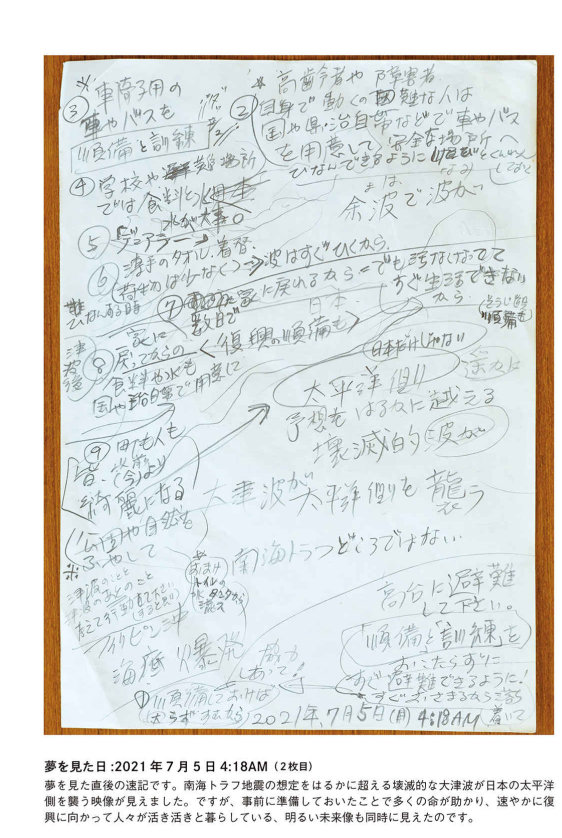 ※
③ 車椅子用の
車やバスを
準備と訓練
※ 高齢者や障害者
② 自身で動くの困難な人は
国や県、治自体などで車やバス
を用意して安全な場所へ
ひなんできるように
④ 学校や避難場所
では食料と水
水が大事。
余波で波が
⑤
⑥ 薄手のタオル、着替、
荷物は少なく
波はすぐひくから、
でも
すぐ生活できない
から
⑦ 家に戻れるから
数日で
日本
ひなんする時
津波後
⑧ 家に
戻ってからの
食料や水も
国や自治体で用意に
復興の準備も
日本だけじゃない
太平洋側
予想をはるかに越える
壊滅的な波が
⑨ 町も人も
昔、以前より
綺麗になる
公園や自然を
ふやして
大津波が太平洋側を襲う
南海トラフどころではない
※
フィリピン沖
海底爆発
高台に避難
して下さい。
「準備と「訓練」を
おこたらずに
すぐ避難できるように!
協力
しあって!
① 準備しておけば
2021年、7月5日(月) 4:18AM
夢を見た日:2021年7月5日 4:18AM(2枚目)
夢を見た直後の速記です。南海トラフ地震の想定をはるかに超える壊滅的な大津波が日本の太平洋
側を襲う映像が見えました。ですが、事前に準備しておいたことで多くの命が助かり、速やかに復
興に向かって人々が活き活きと暮らしている、明るい未来像も同時に見えたのです。